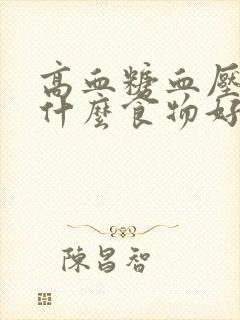 高血糖血壓
什麼食物好
陳昌智